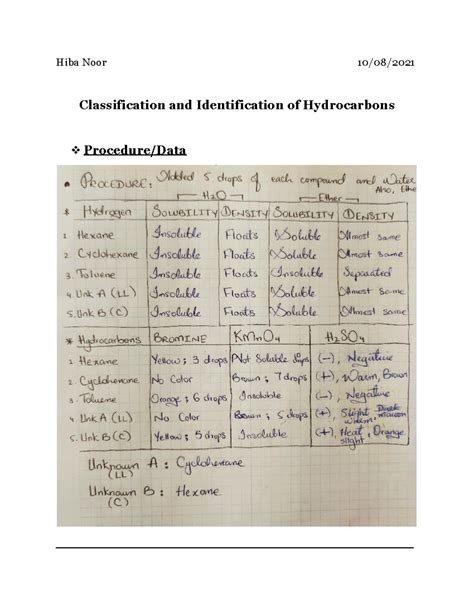 Hiba Noor 10/08/2021
Classification and Identification of Hydrocarbons
❖ Procedure/Data
• PROCEDURE: Added 5 drops of each compound and Water
Also, Ethe
H₂O Ether
* Hydrogen SOLUBILITY DENSITY SOLUBILITY DENSITY
1. Hexane Insoluble Floats Soluble Almost same
2. Cyclohexane Insoluble Floats Soluble Almost same
3. Toluene Insoluble Floats Insoluble Separated
4. Unk A (LL) Insoluble Floats Soluble Almost same
5. Unk B (C) Insoluble Floats Soluble Almost same
* Hydrocarbons BROMINE KMnO₄ H₂SO₄
1. Hexane Yellow; 3 drops Not Soluble (-), Negative
2. Cyclohexane No Color Brown; 7 drops (+), Warm, Brown
3. Toluene Orange; 6 drops Insoluble (-), Negative
4. Unk A (LL) No Color Brown; 5 drops (+), Slight warm,
5. Unk B (C) Yellow; 5 drops Insoluble (+), Heat, Orange
slight
Unknown A : Cyclohexane
(LL)
Unknown B : Hexane
(C)